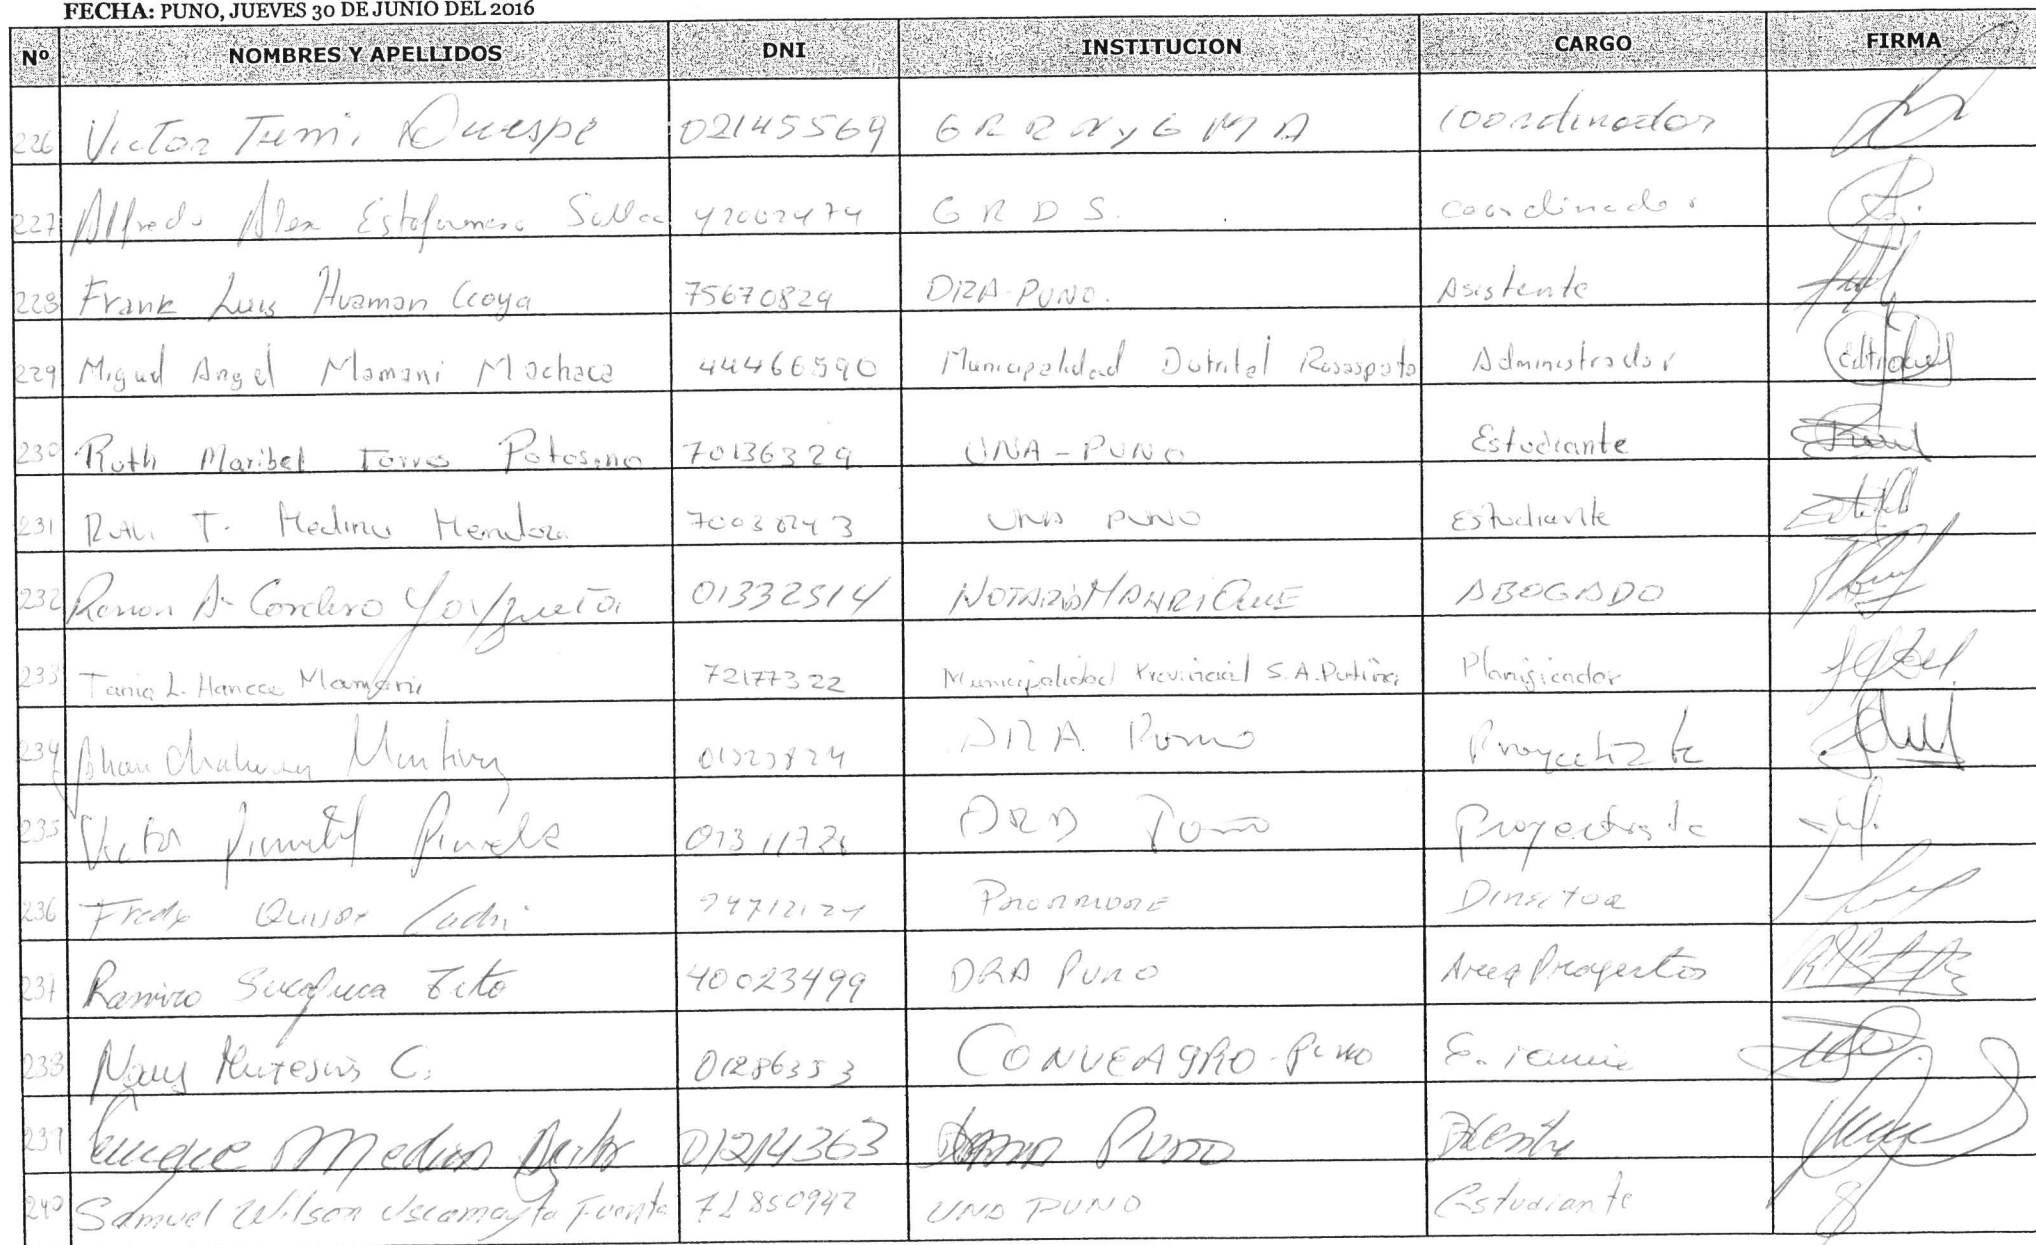 FECHA: PUNO, JUEVES 30 DE JUNIO DEL 2016
Nº NOMBRES Y APELLIDOS DNI INSTITUCION CARGO FIRMA
226 Victor Tumi Quespe 02145569 GRRNyGMA coordinador
227 Alfredo Alex Sullca 42002474 GRDS. coordinador
228 Frank Luis Huaman Ccoya 75670829 DRA-PUNO. Asistente
229 Miguel Angel Mamani Machaca 44466590 Municipalidad Distrital Rosaspata Administrador
230 Ruth Maribel Torres Potosino 70136329 UNA-PUNO Estudiante
231 Ruth T. Medina Mendoza UNA PUNO Estudiante
232 Ramon A. Cordero 01332514 ABOGADO
233 Tania L. Hancco Mamani 72177322 Municipalidad Provincial S.A. Putina Planificador
234 DRA Puno Proyectista
235 Victor Pimentel Pineda DRA Puno Proyectista
236 Fredy Director
237 Ramiro Sucapuca Tito 40023499 DRA Puno Area Proyectos
238 C. 01286353 CONVEAGRO-PUNO
239 Enrique Medina 01214363 Puno
240 Samuel Wilson Uscamayta Fuente 71850942 UNA PUNO Estudiante